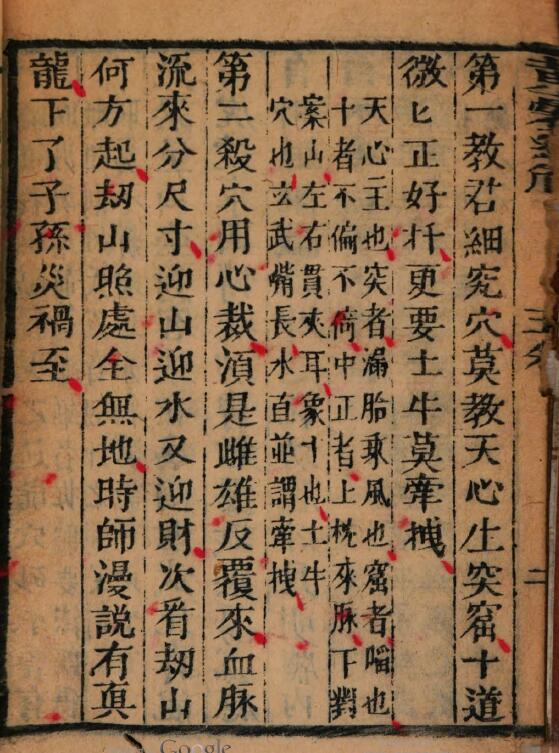 二
第一教君細究穴莫教天心生突窟十道
微匕正好扦更要土牛莫牽拽
天心主也突者漏胎乘風也窟者啗也
十者不偏不倚中正者上枕來脉下對
案山左右貫夾耳象也土牛
穴也玄武嘴長水直並謂牽拽
第二殺穴用心裁湏是雌雄反覆來血脉
流來分尺寸迎山迎水又迎財次看刼山
何方起刼山照處全無地時師漫說有真
龍下了子孫災禍至
Google